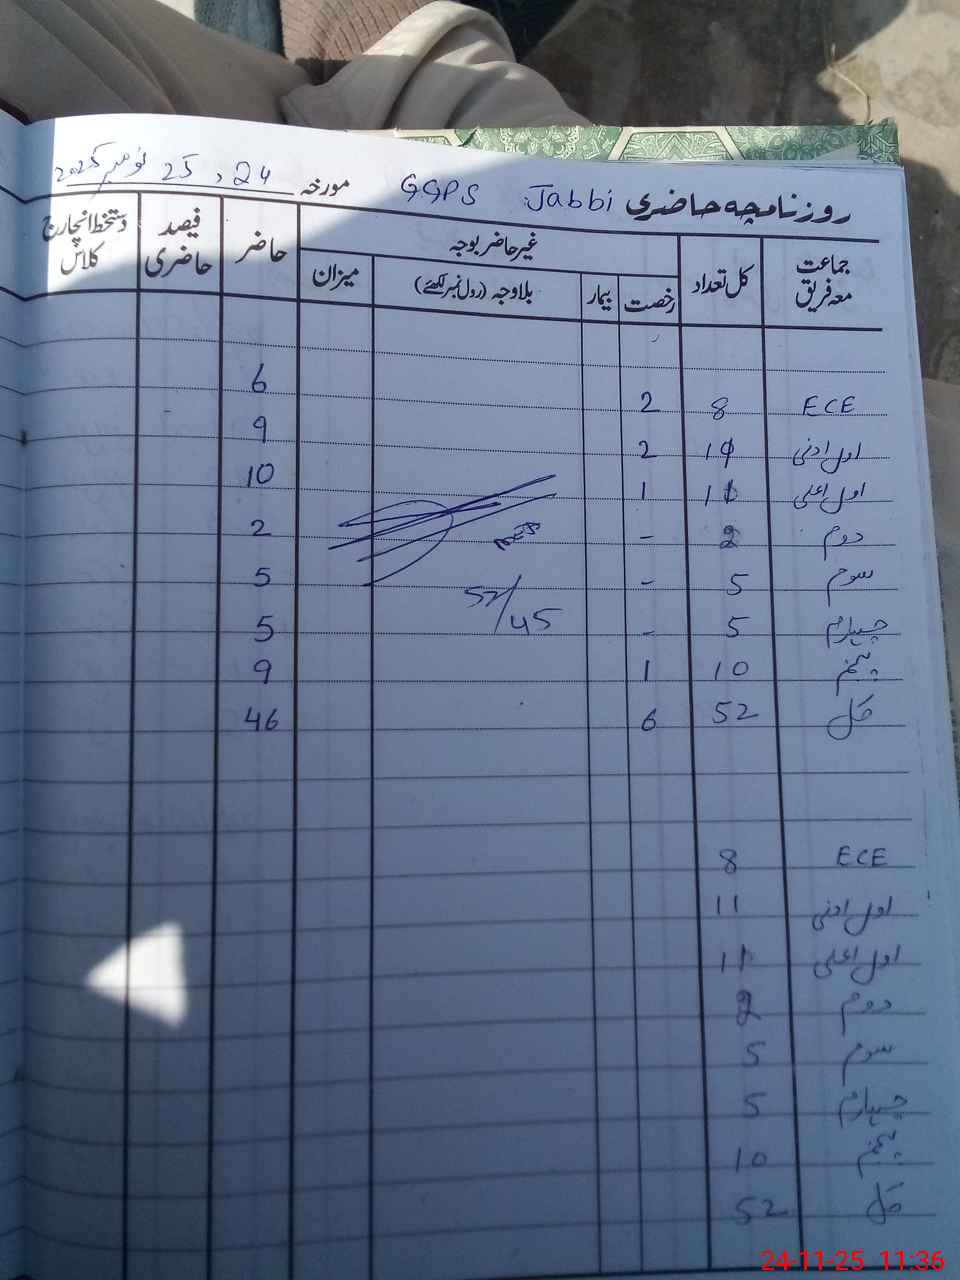 روزنامچہ حاضری GGPS Jabbi مورخہ 24، 25 نومبر 2025
جماعت معہ فریق کل تعداد غیر حاضر بوجہ حاضر فیصد حاضری دستخط انچارج کلاس
رخصت بیمار بلاوجہ (رول نمبر لکھئے) میزان
ECE 8 2 6
اول ادنی 11 2 9
اول اعلی 11 1 10
دوم 2 - 2
سوم 5 - 5
چہارم 5 - 5
پنجم 10 1 9
کل 52 6 46
52/45
ECE 8
اول ادنی 11
اول اعلی 11
دوم 2
سوم 5
چہارم 5
پنجم 10
کل 52
24-11-25 11:36